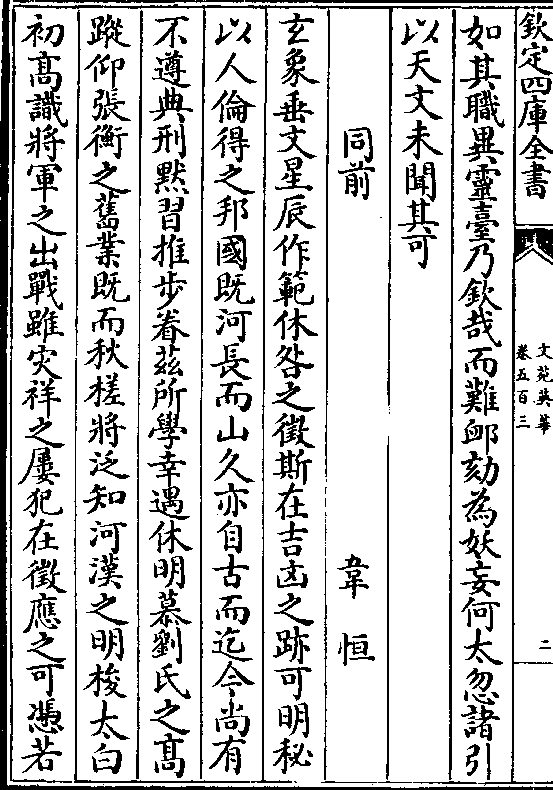 欽定四庫全書
文苑英華
卷五百三
二
如其職異靈臺乃欽哉而難衈劾為妖妄何太忽諸引
以天文未聞其可
同前
韋恒
玄象垂文星辰作範休咎之徵斯在吉凶之跡可明秘
以人倫得之邦國既河長而山久亦自古而迄今尚有
不遵典刑黙習推步眷茲所學幸遇休明慕劉氏之髙
蹤仰張衡之舊業既而秋槎將泛知河漢之明梭太白
初髙識將軍之出戰雖灾祥之屢犯在徵應之可憑若